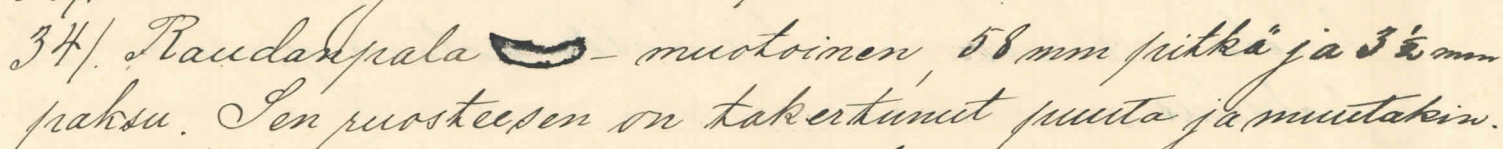 34/. Raudanpala - muotoinen, 58 mm pitkä ja 3 ½ mm
paksu. Sen ruosteesen on takertunut puuta ja muutakin.